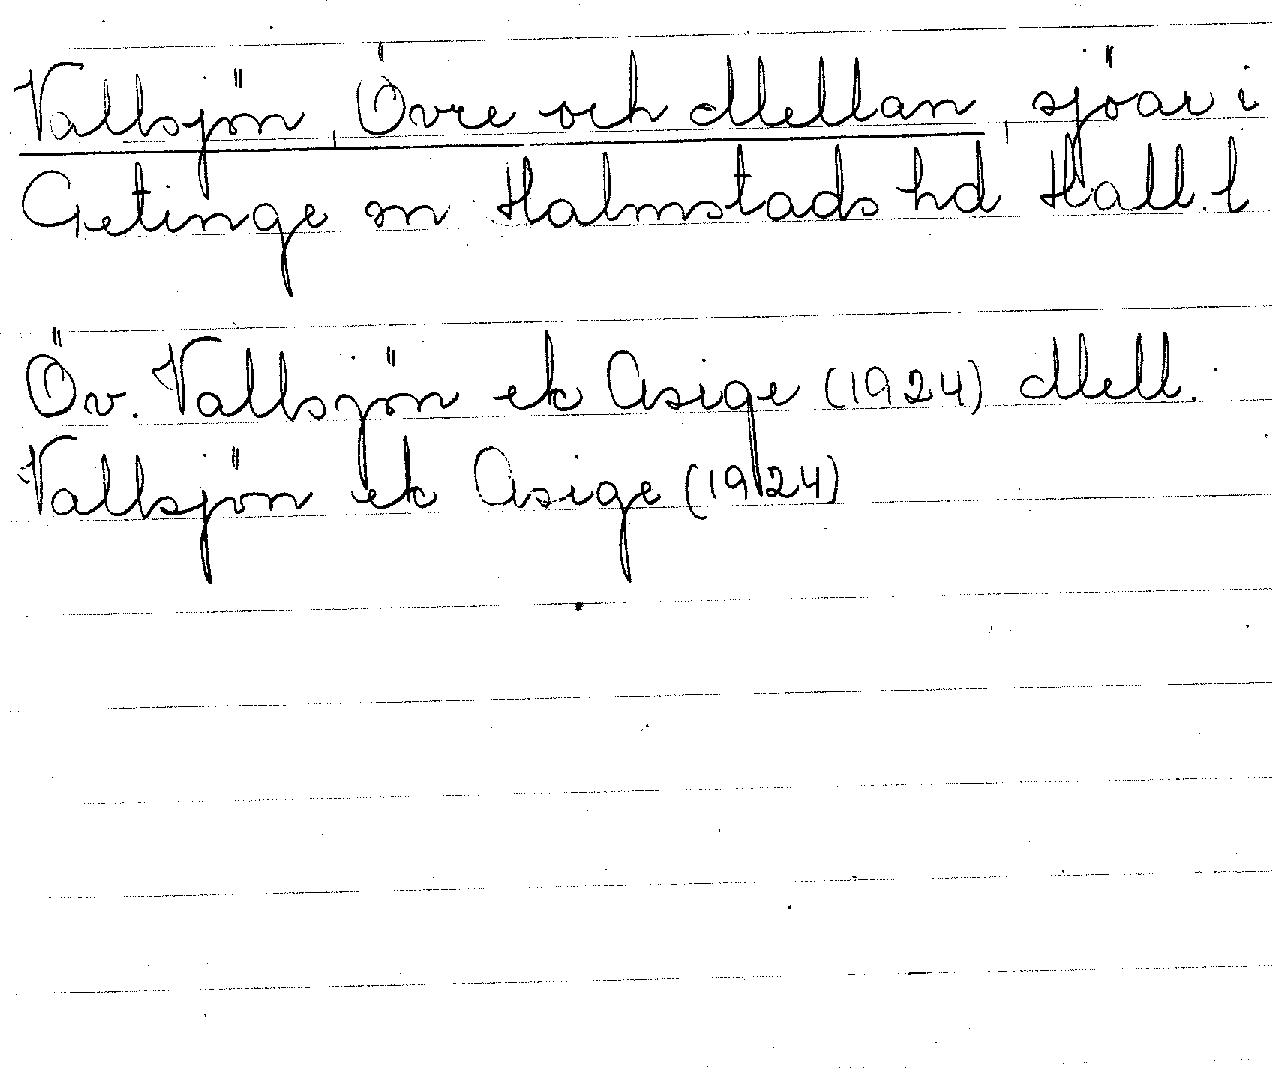 Vallsjön, Övre och Mellan, sjöar i
Getinge sn Halmstads hd Hall. l
Öv. Vallsjön ek Asige (1924) Mell.
Vallsjön ek Asige (1924)